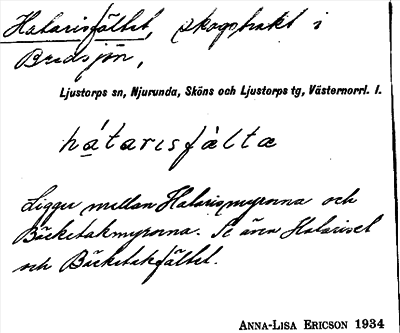 Hatarisfältet, skogstrakt i
Bredsjön,
Ljustorps sn, Njurunda, Sköns och Ljustorps tg, Västernorrl. l.
há̱tarisfàlta
Ligger mellan Hatarismyrorna och
Bäcketakmyrorna. Se även Hatariset
och Bäcketakfältet.
ANNA-LISA ERICSON 1934